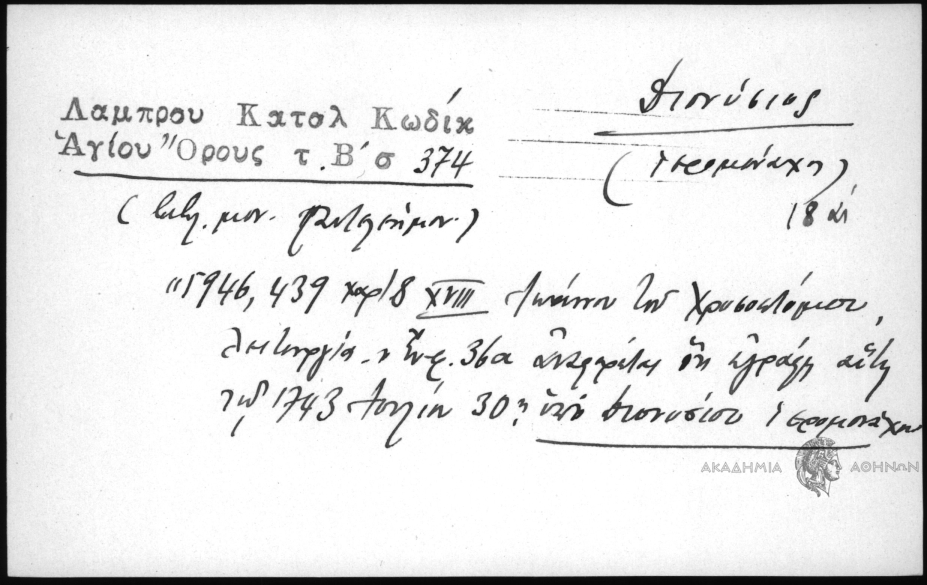 Διονύσιος
Λαμπρου Κατολ Κωδίκ
Ἁγίου Ὄρους τ. Β´ σ 374
(Ἱερομόναχος)
18 αἰ
(βιβλ. μον. Παντελεήμον.)
"5946, 439 χαρ/8 XVIII Ἰωάννου τοῦ Χρυσοστόμου,
Λειτουργία. Ἐν φ. 36α ὅτι ἐγράφη αὕτη
τῷ 1743 Ἰουλίου 30ῃ ὑπὸ Διονυσίου Ἱερομονάχου
ΑΚΑΔΗΜΙΑ ΑΘΗΝΩΝ